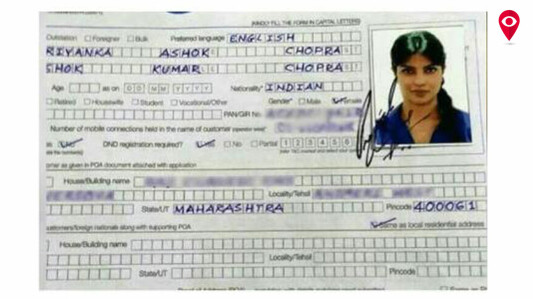 (KINDLY FILL THE FORM IN CAPITAL LETTERS)
Outstation Foreigner Bulk Preferred language ENGLISH
RIYANKA ASHOK CHOPRA
SHOK KUMAR CHOPRA
Age as on DD MM YYYY Nationality* INDIAN
Retired Housewife Student Vocational/Other Gender* Male Female
PAN/GIR No.
Number of mobile connections held in the name of customer
DND registration required? Yes No Partial 1 2 3 4 5 6
as given in POA document attached with application
House/Building name
Locality/Tehsil
State/UT MAHARASHTRA Pincode 400061
customers/foreign nationals along with supporting POA Same as local residential address
House/Building name
Locality/Tehsil
State/UT Pincode